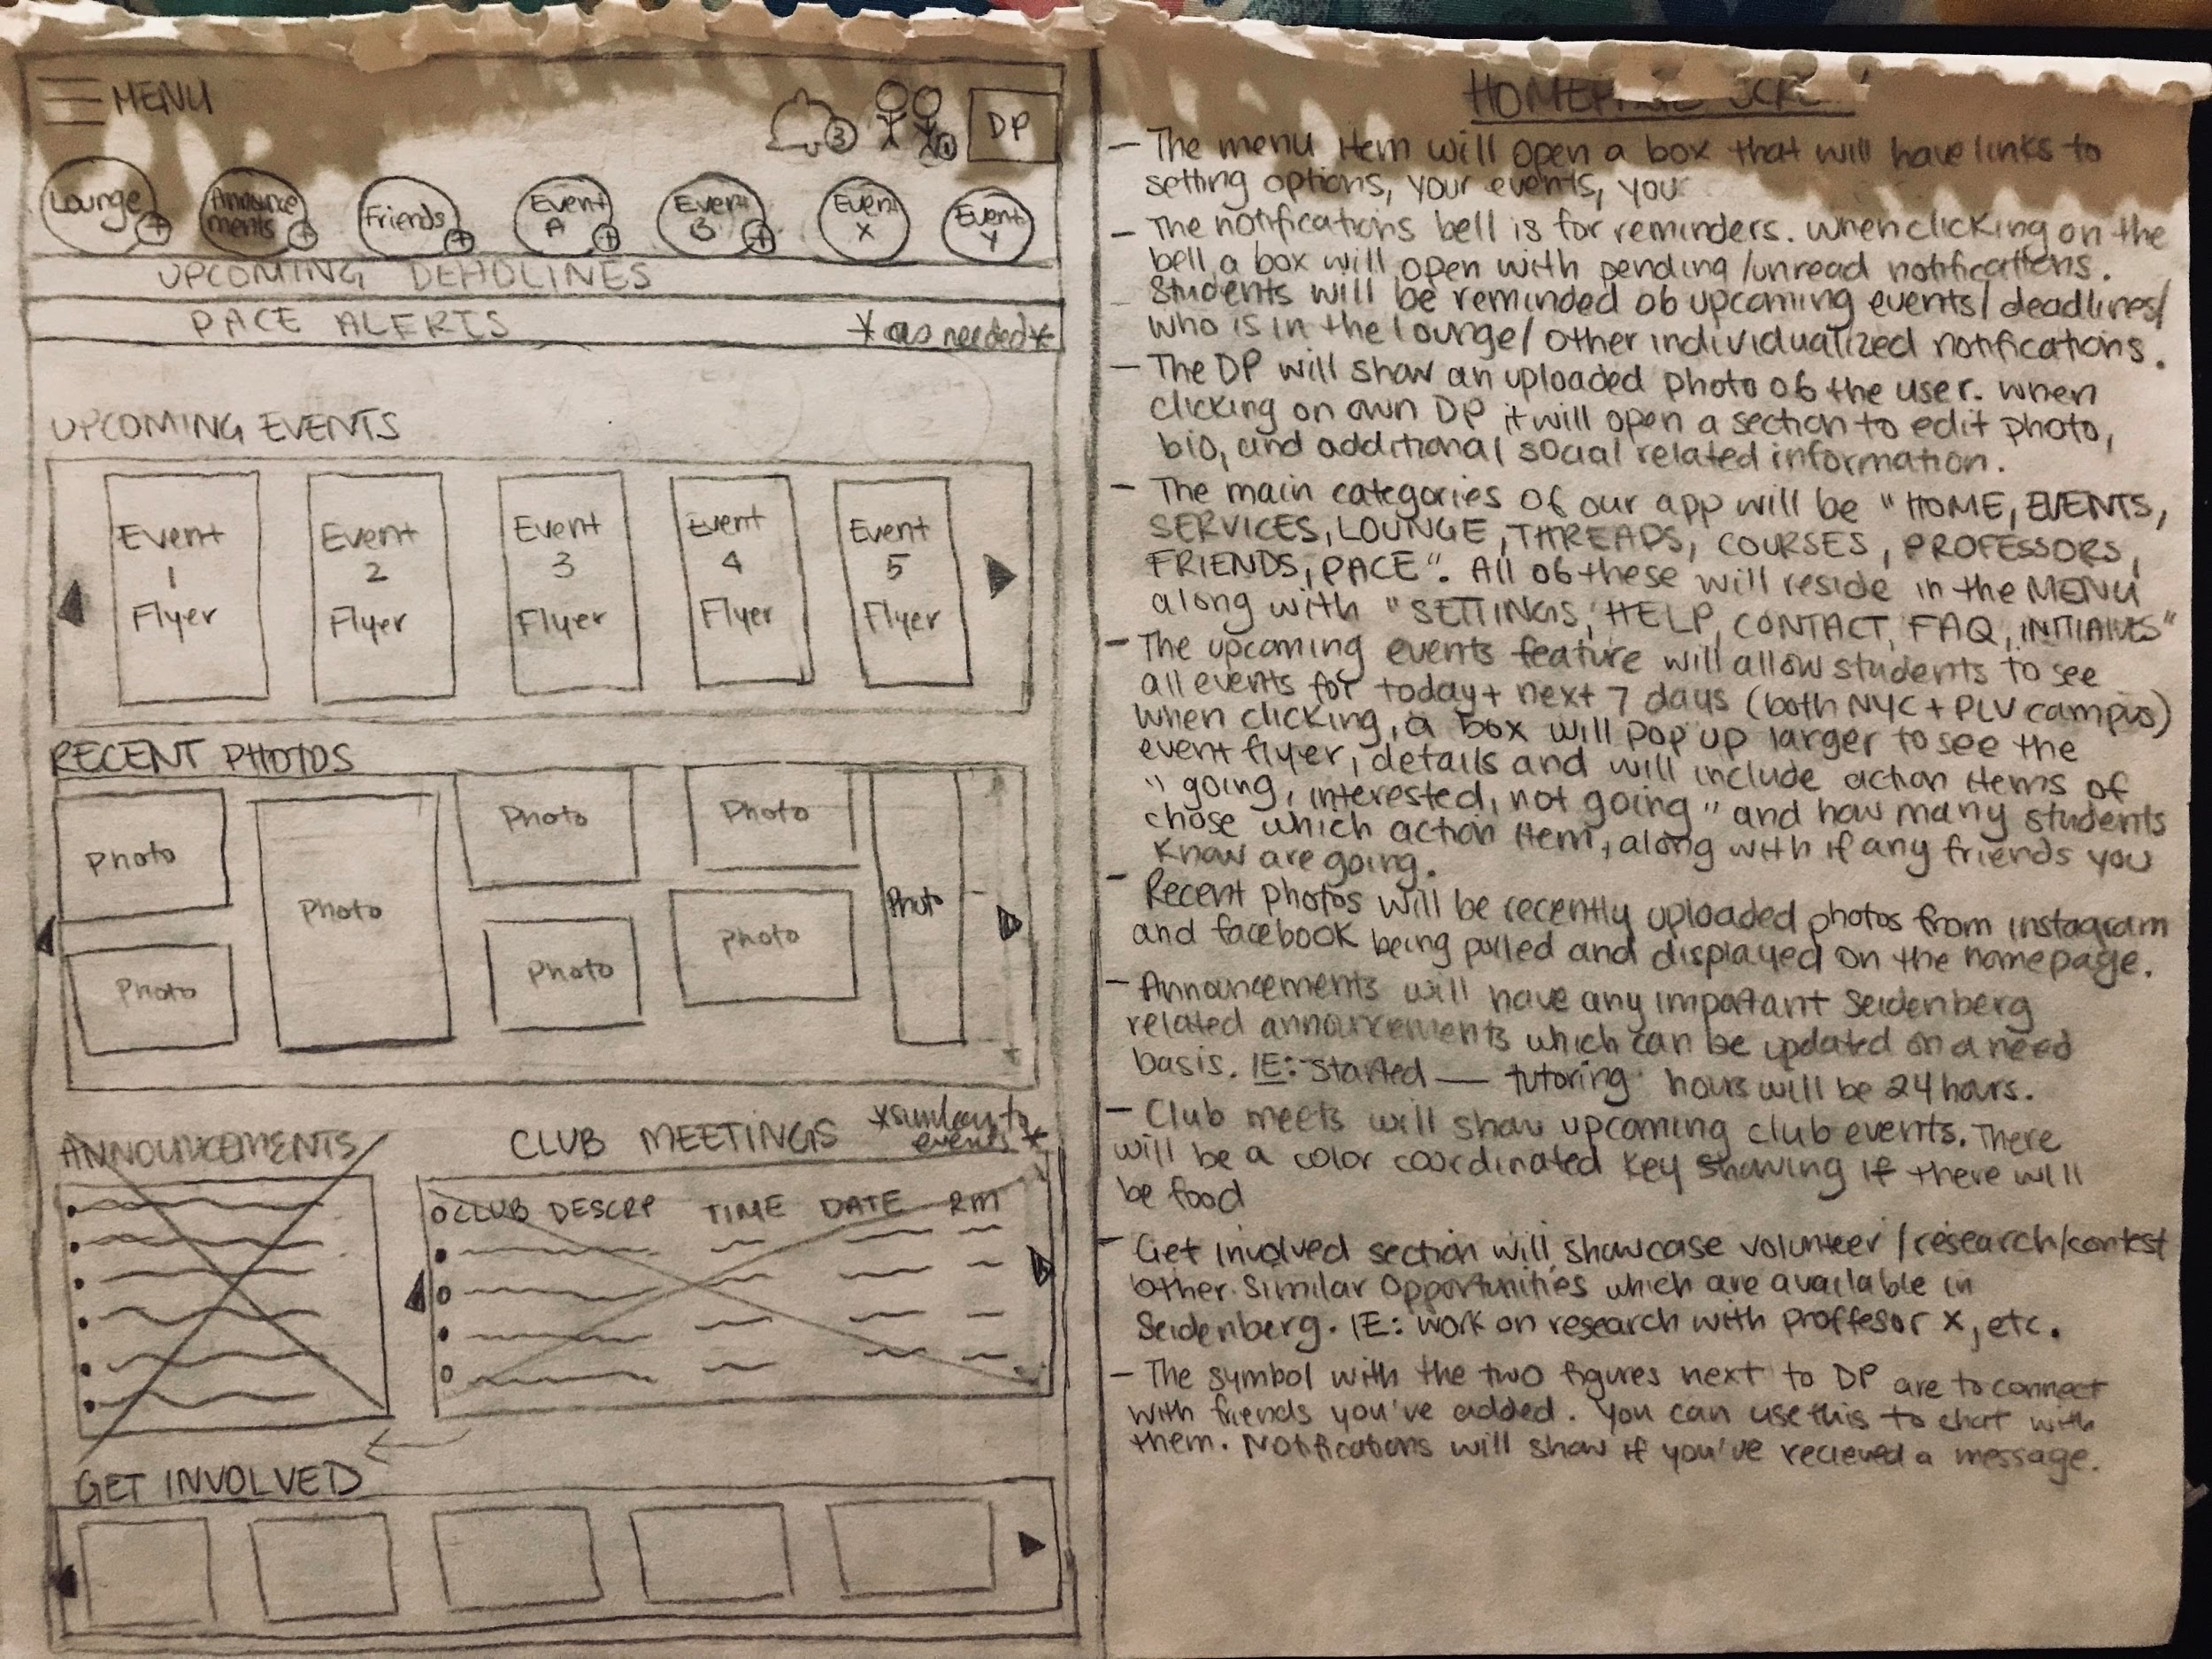 MENU
3
1
DP
Lounge +
Announcements +
Friends +
Event A +
Event B +
Event X
Event Y
UPCOMING DEADLINES
PACE ALERTS *as needed*
UPCOMING EVENTS
Event 1 Flyer
Event 2 Flyer
Event 3 Flyer
Event 4 Flyer
Event 5 Flyer
RECENT PHOTOS
Photo
Photo
Photo
Photo
Photo
Photo
Photo
Photo
ANNOUNCEMENTS
CLUB MEETINGS *similar to events*
CLUB DESCRP TIME DATE RM
GET INVOLVED
HOMEPAGE
- The menu item will open a box that will have links to
setting options, your events, you
- The notifications bell is for reminders. When clicking on the
bell, a box will open with pending/unread notifications.
Students will be reminded of upcoming events/deadlines/
who is in the lounge/other individualized notifications.
- The DP will show an uploaded photo of the user. When
clicking on own DP it will open a section to edit photo,
bio, and additional social related information.
- The main categories of our app will be "HOME, EVENTS,
SERVICES, LOUNGE, THREADS, COURSES, PROFESSORS,
FRIENDS, PACE". All of these will reside in the MENU
along with "SETTINGS, HELP, CONTACT, FAQ, INITIAIVES"
- The upcoming events feature will allow students to see
all events for today + next 7 days (both NYC + PLV campus)
When clicking, a box will pop up larger to see the
event flyer, details and will include action items of
"going, interested, not going" and how many students
chose which action item, along with if any friends you
know are going.
- Recent photos will be recently uploaded photos from instagram
and facebook being pulled and displayed on the homepage.
- Announcements will have any important Seidenberg
related announcements which can be updated on a need
basis. IE: Started — tutoring hours will be 24 hours.
- Club meets will show upcoming club events. There
will be a color coordinated key showing if there will
be food
- Get involved section will showcase volunteer/research/contest
other similar opportunities which are available in
Seidenberg. IE: work on research with proffesor x, etc.
- The symbol with the two figures next to DP are to connect
with friends you've added. You can use this to chat with
them. Notifications will show if you've recieved a message.